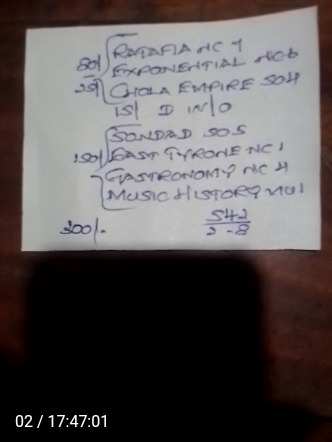 80/ RATAFIA NC 7
EXPONENTIAL NC 6
25/ CHOLA EMPIRE SO4
15/ D IN/O
SONDAD SO.5
150/ EAST TYRONE NC 1
GASTRONOMY NC 4
MUSIC HISTORY NU 1
300/- 542
2-8
02 / 17:47:01